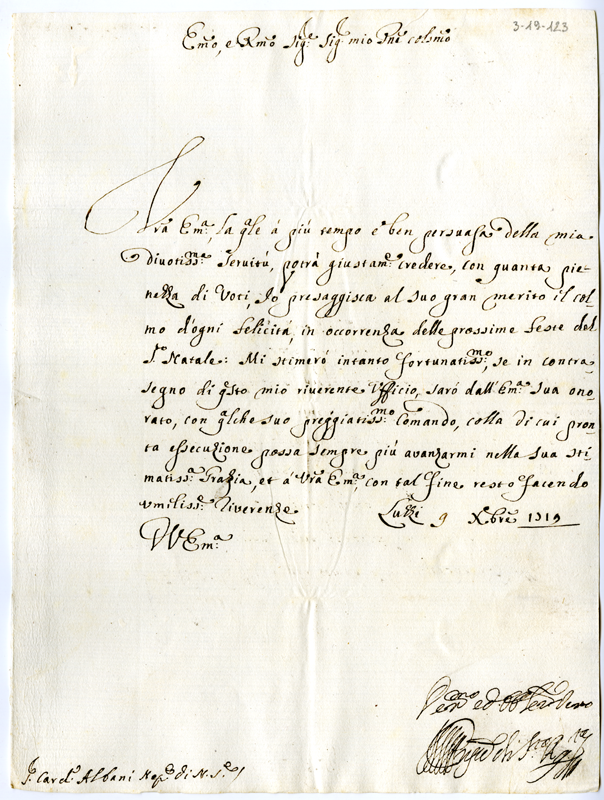 3-19-123
Emo, e Rmo Sigre Sigr mio Pnē colsmo
Vrā Emā, la qle á più tempo è ben persuasa della mia
divotissma Servitù, potrà giustame credere, con quanta pie-
nezza di Voti, Io presaggisca al suo gran merito il col
mo d'ogni felicità, in occorrenza delle prossime feste del
So Natale: Mi stimerò intanto fortunatissmo, se in contra
segno di qsto mio riverente Ufficio, sarò dall'Ema sua ono
rato, con qlche suo preggiatissmo Comando, colla di cui pron
ta essecuzione possa sempre più avanzarmi nella sua sti
matissa Grazia, et á Vrā Emā, con tal fine resto facendo
umilisse Riverenze Luzzi 9 Xbre 1719
D V Ema
Card. Albani Nep. di N. Sre